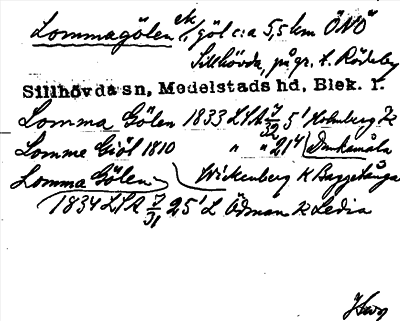 Lommagölen ek, göl c:a 5,5 km ÖNÖ
Sillhövda, på gr. t. Rödeby
Sillhövda sn, Medelstads hd, Blek. l.
Lomma Gölen 1833 LSA 7/32 5'
Lomme Giöl 1810 " " 21 4 Dunkamåla
Lomma Gölen Wickenberg K Baggetånga
1834 LSA 7/31 25' L Ödman K Ledja